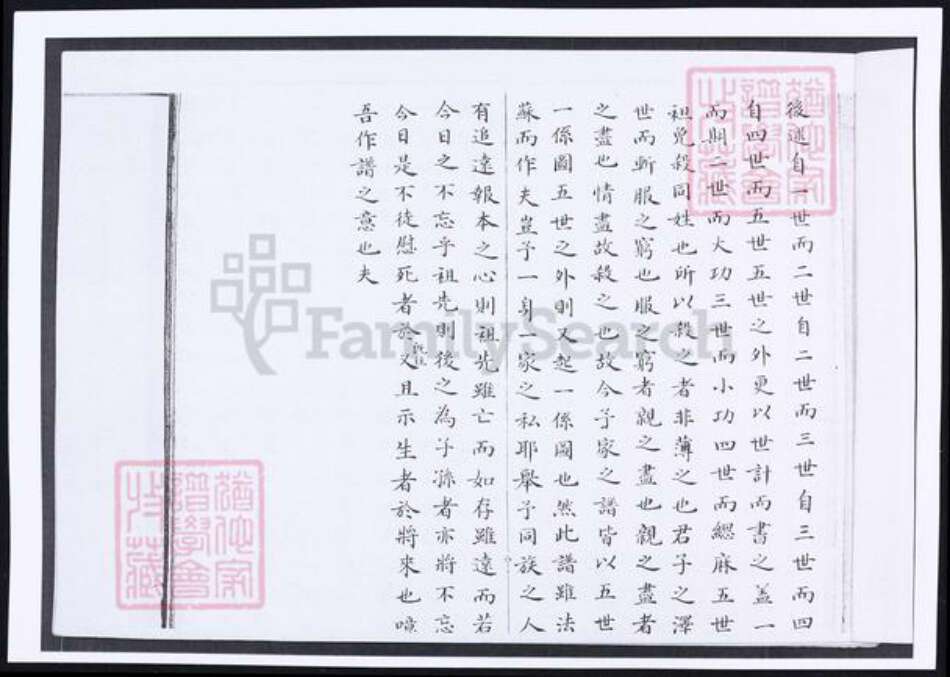 後遞自一世而二世自二世而三世自三世而四
自四世而五世五世之外更以世計而書之盖一
而期二世而大功三世而小功四世而緦麻五世
祖免殺同姓也所以殺之者非薄之也君子之澤
世而斬服之窮也服之窮者親之盡也親之盡者
之盡也情盡故殺之也故今予家之譜皆以五世
一係圖五世之外則又起一係圖也然此譜雖法
蘇而作夫豈予一身一家之私耶舉予同族之人
有追遠報本之心則祖先雖亡而如存雖遠而若
今日之不忘乎祖先則後之為子孫者亦將不忘
今日是不徒慰死者於既往又且示生者於將來也噫
吾作譜之意也夫
FamilySearch